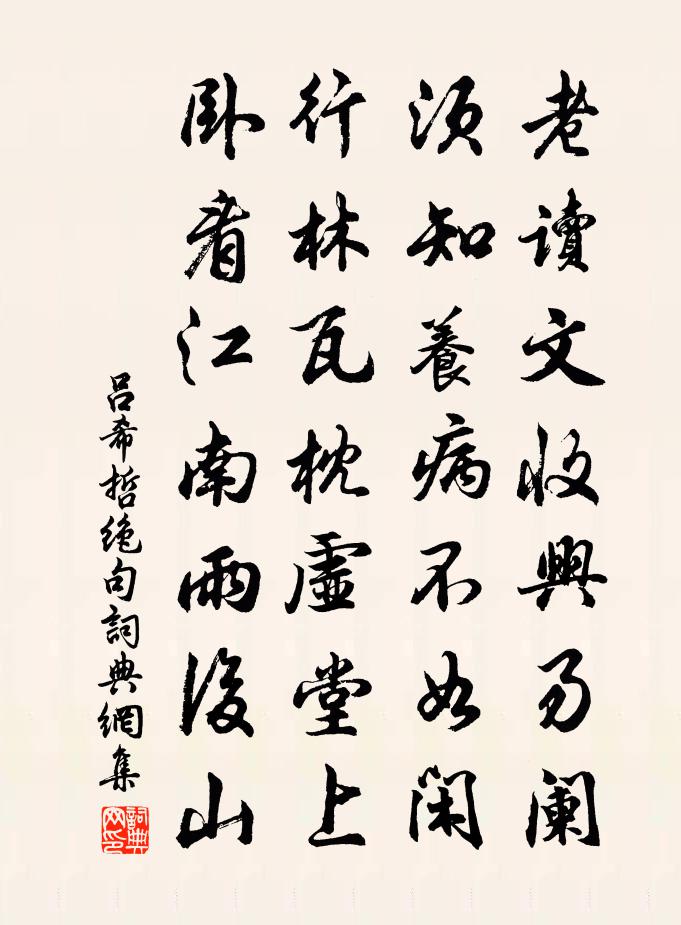 老讀文收興易闌
須知養病不如閑
行林瓦枕虛堂上
卧看江南雨後山
呂希哲絶句詞典網集
詞典网印